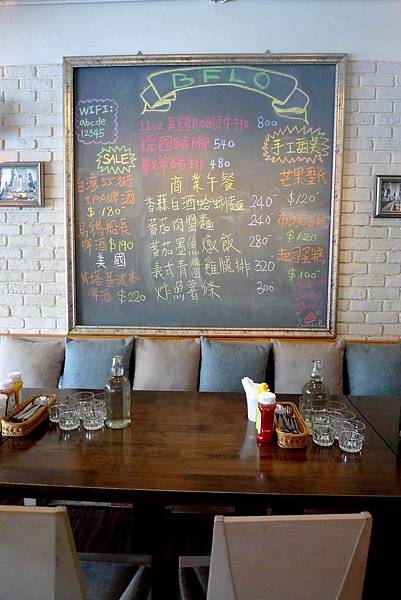 BFLO
WIFI:
abcde
12345
11oz美國肋眼牛排 800
德國豬腳 540
戰斧豬排 480
SALE
台灣55街
IPA啤酒
$180
烏鴉船長
啤酒$190
美國
肯塔基波本
啤酒 $220
商業午餐
香蒜白酒蛤蜊麵 240
番茄肉醬麵 240
番茄墨魚燉飯 280
義式青醬雞腿排 320
炸魚薯條 300
手工甜點
芒果聖代
$120
$120
起司蛋糕
$100